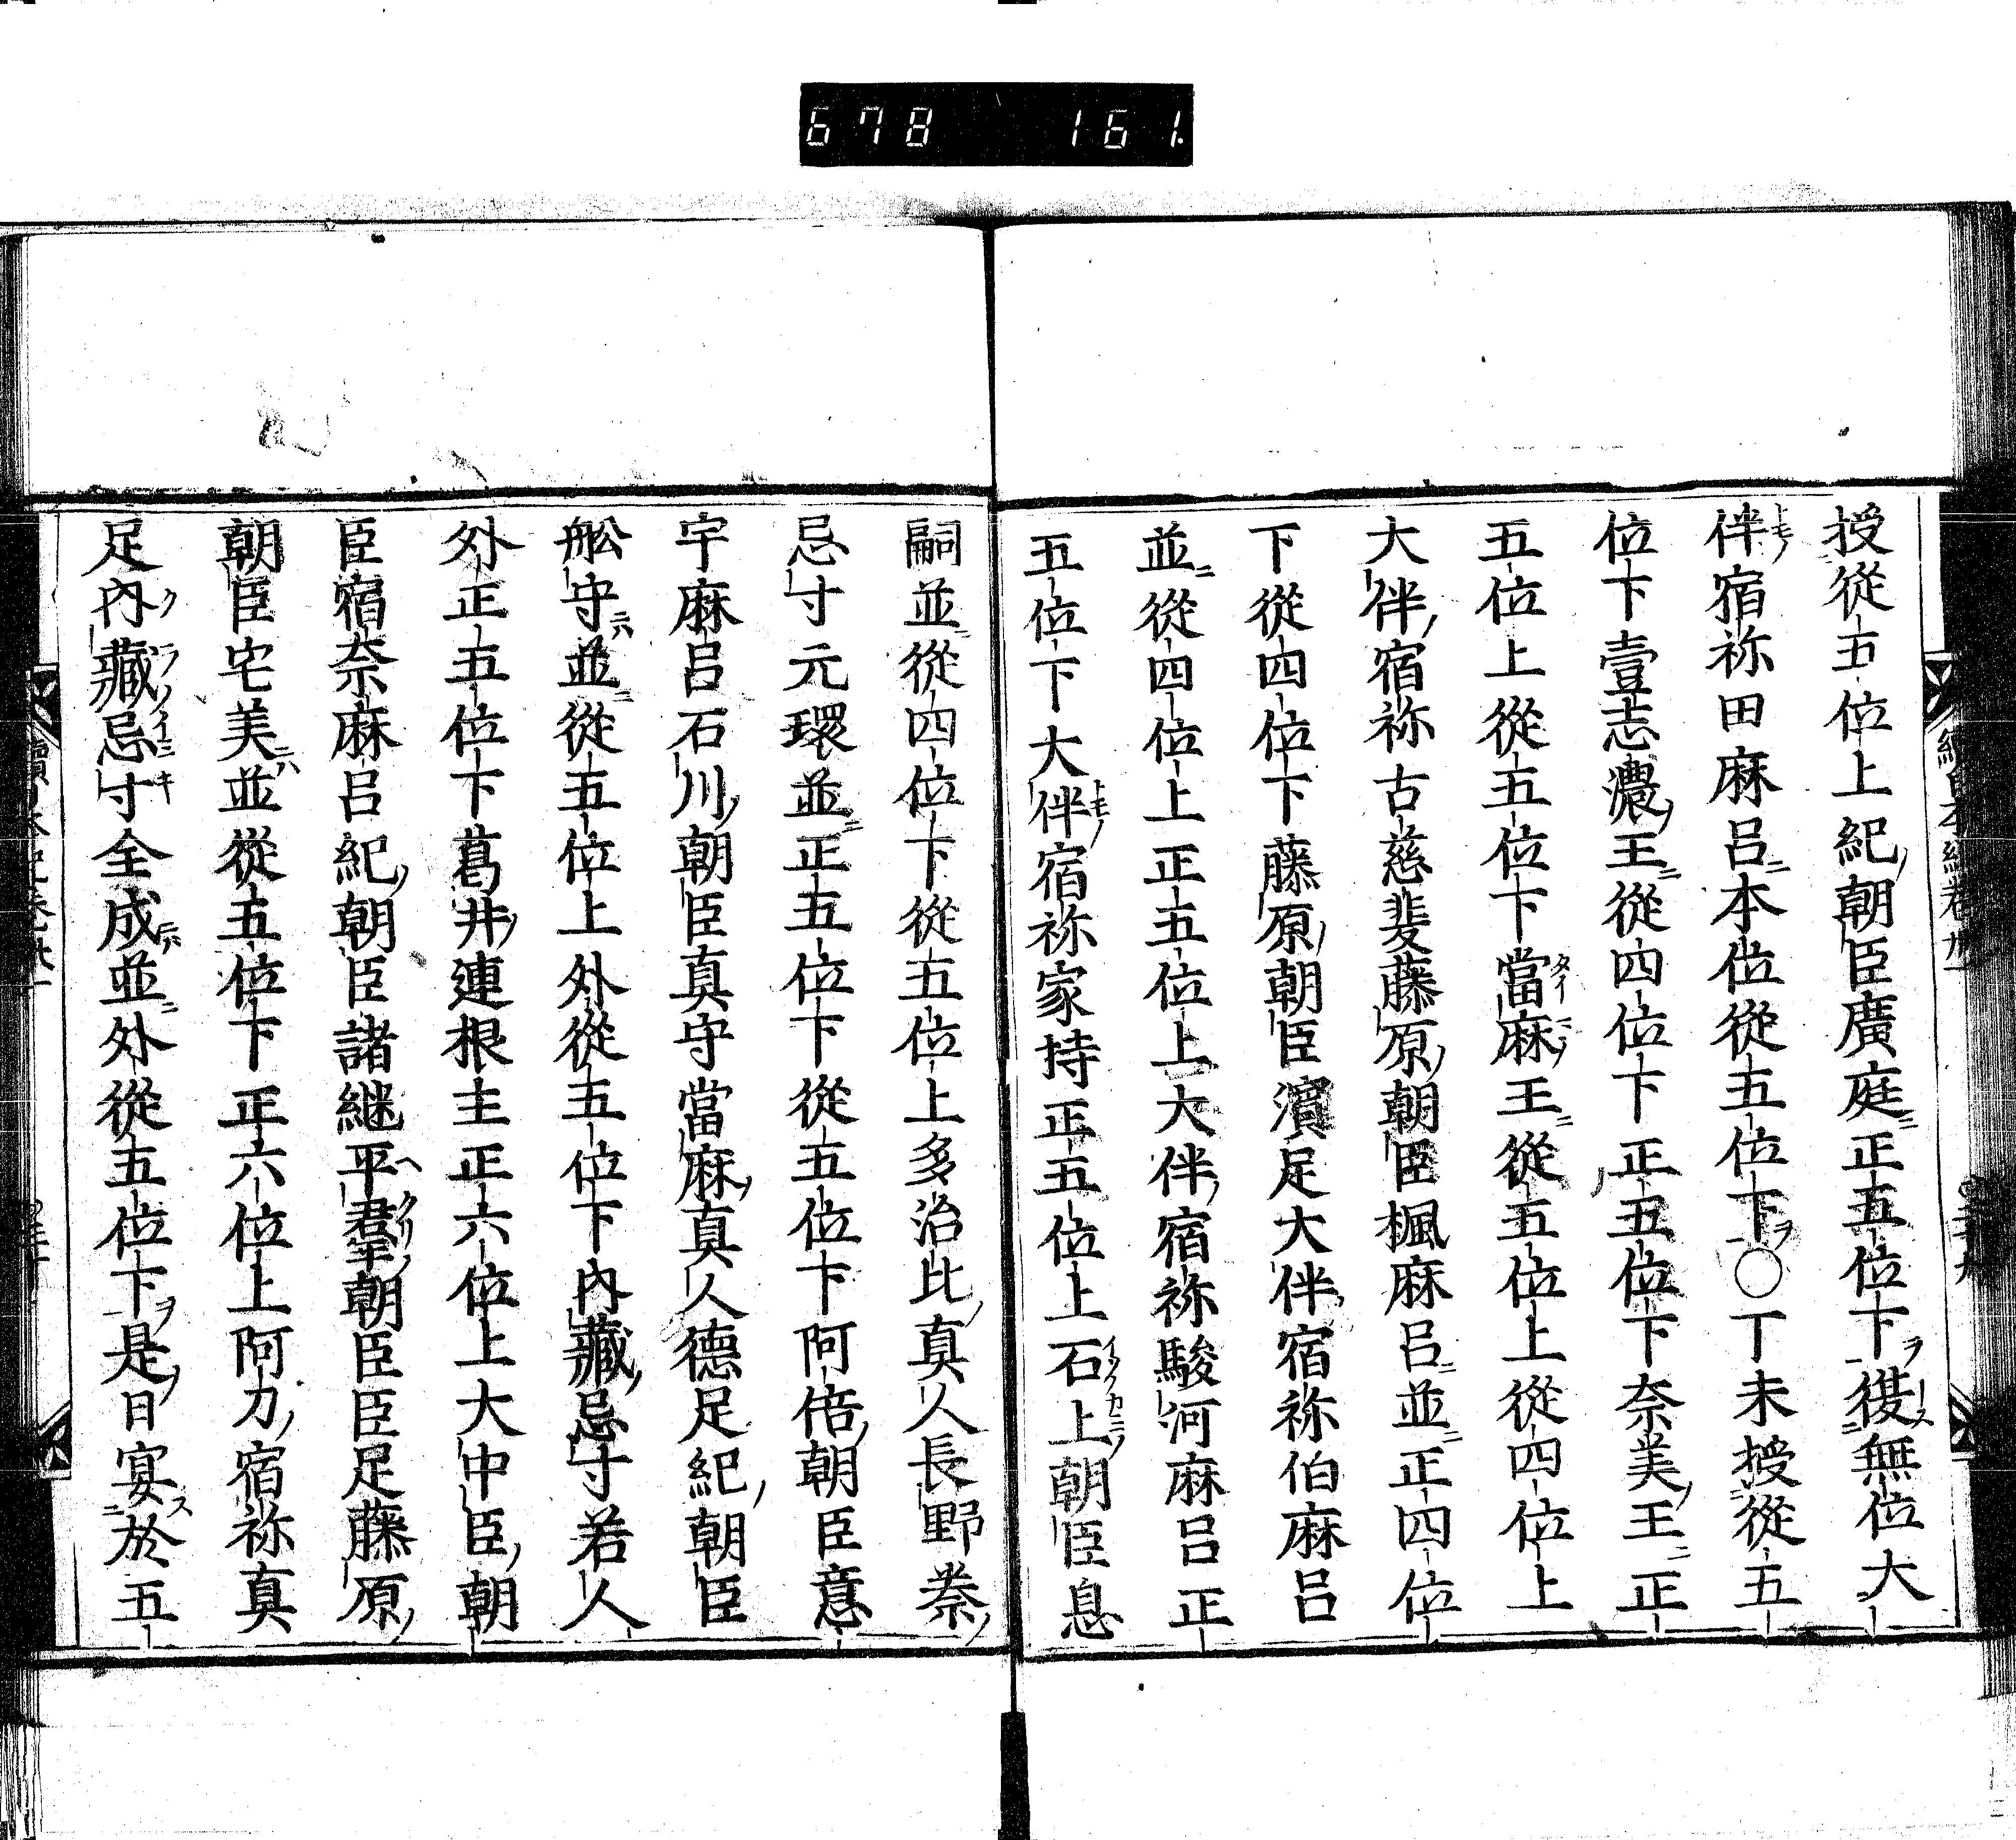 678 161.
授從五位上紀朝臣廣庭正五位下復無位大
伴宿祢田麻呂本位從五位下〇丁未授從五
位下壹志濃王從四位下正五位下奈美王正
五位上從五位下當麻王從五位上從四位上
大伴宿祢古慈斐藤原朝臣楓麻呂並正四位
下從四位下藤原朝臣濱足大伴宿祢伯麻呂
並從四位上正五位上大伴宿祢駿河麻呂正
五位下大伴宿祢家持正五位上石上朝臣息
嗣並從四位下從五位上多治比真人長野桊
忌寸元環並正五位下從五位下阿倍朝臣意
宇麻呂石川朝臣真守當麻真人德足紀朝臣
舩守並從五位上外從五位下內藏忌寸若人
外正五位下葛井連根主正六位上大中臣朝
臣宿奈麻呂紀朝臣諸継平羣朝臣臣足藤原
朝臣宅美並從五位下正六位上阿刀宿祢真
足內藏忌寸全成並外從五位下是日宴於五